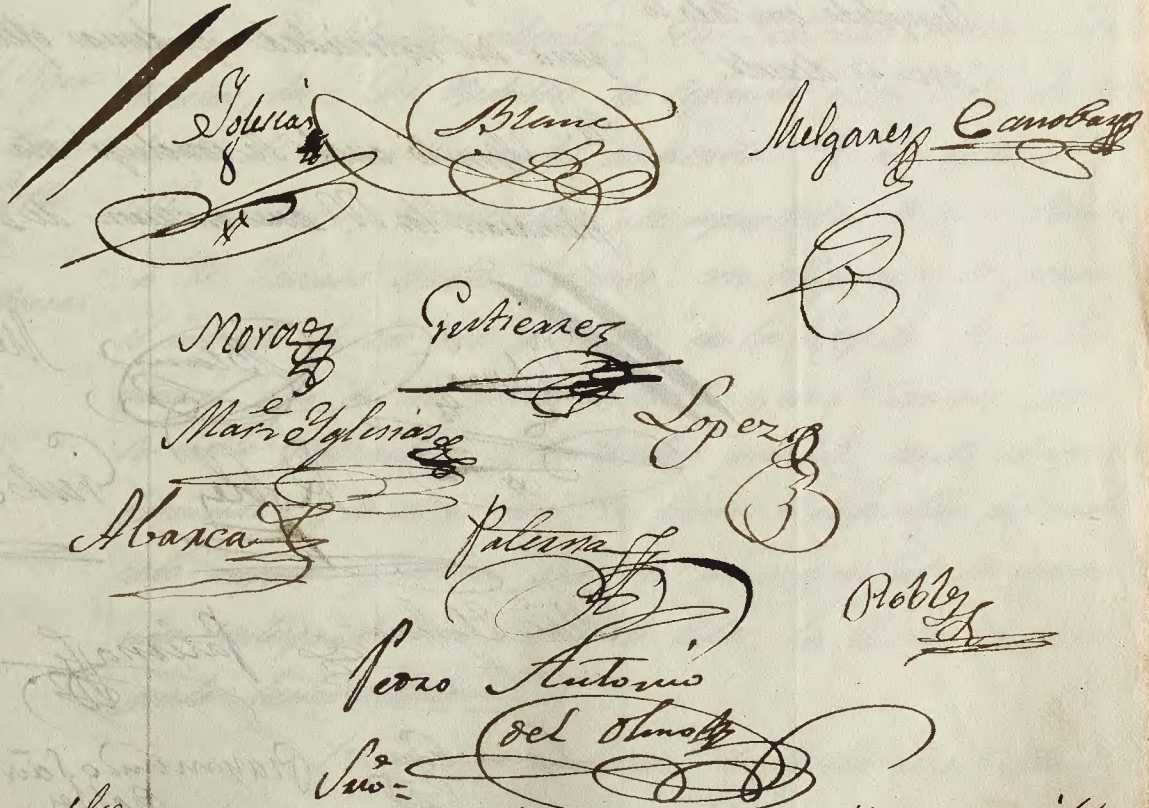 Yglesias Blanc Melgarez Canobas
Moroz Gutierrez
Man.e Yglesias Lopez
Abarca Paterna
Robles
Pedro Antonio
del Olmo
Srio=